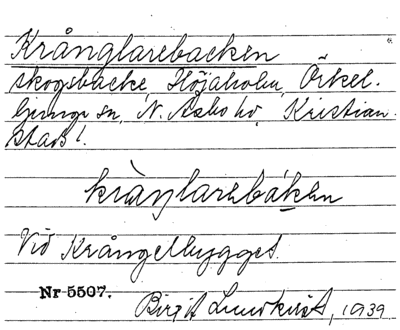 Krånglarebacken
skogsbacke, Höjaholm, Örkel-
ljunga sn, N. Åsbo hd, Kristian-
stads l.
kràŋlarebáken
Vid Krångelhygget.
Nr 5507.
Birgit Lundkvist, 1939